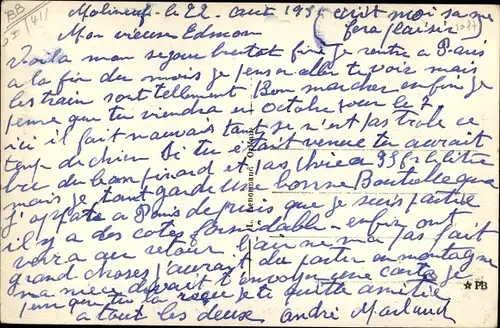 Molineuf le 22 aout 195 ecrit moi sa me
Mon vieux Edmon fera plaisir
Voila mon sejour bientot fini je rentre a Paris
a la fin du mois je penser aller te voir mais
les train sont tellement Bon marcher enfin je
pense que tu viendra en Octobre pour le 7
ici il fait mauvais tant se n'est pas trole ce
temp de chien Si tu etait venue tu aurait
bu du bon pinard et pas chere a 35 F le litre
mais je t'ant garde une bonne Bouteille que
j'apporte a Paris depuis que je suis partie
il y a des cotes formidable enfin ont
verra au retour l'air ne ma pas fait
grand choses j'aurait du partir en montagne
ma niece devait t'envoyer une carte je
pense que tu la reçue je te quitte amitié
a tout les deux André Marlaud
H. Lenormand, Orléans
★ PB